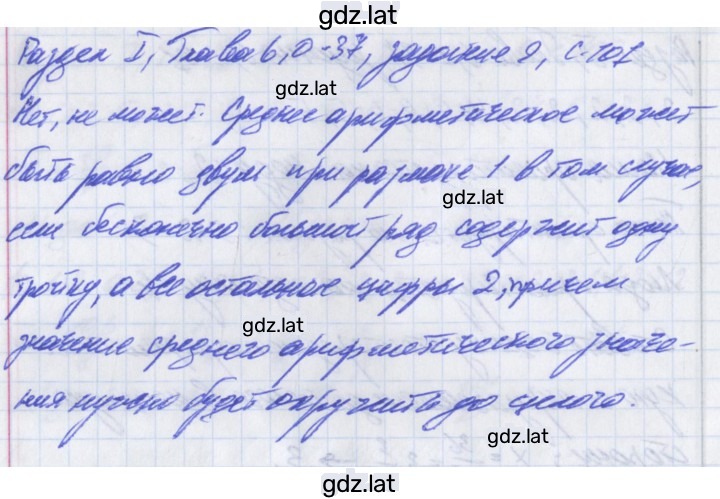 gdz.lat
Раздел I, Глава 6, О-37, задание 9, с-107
gdz.lat
Нет, не может. Среднее арифметическое может
быть равно двум при размахе 1 в том случае,
gdz.lat
если бесконечно большой ряд содержит одну
тройку, а все остальные цифры 2, причем
gdz.lat
значение среднего арифметического значе-
ния нужно будет округлить до целого.
gdz.lat
gdz.lat